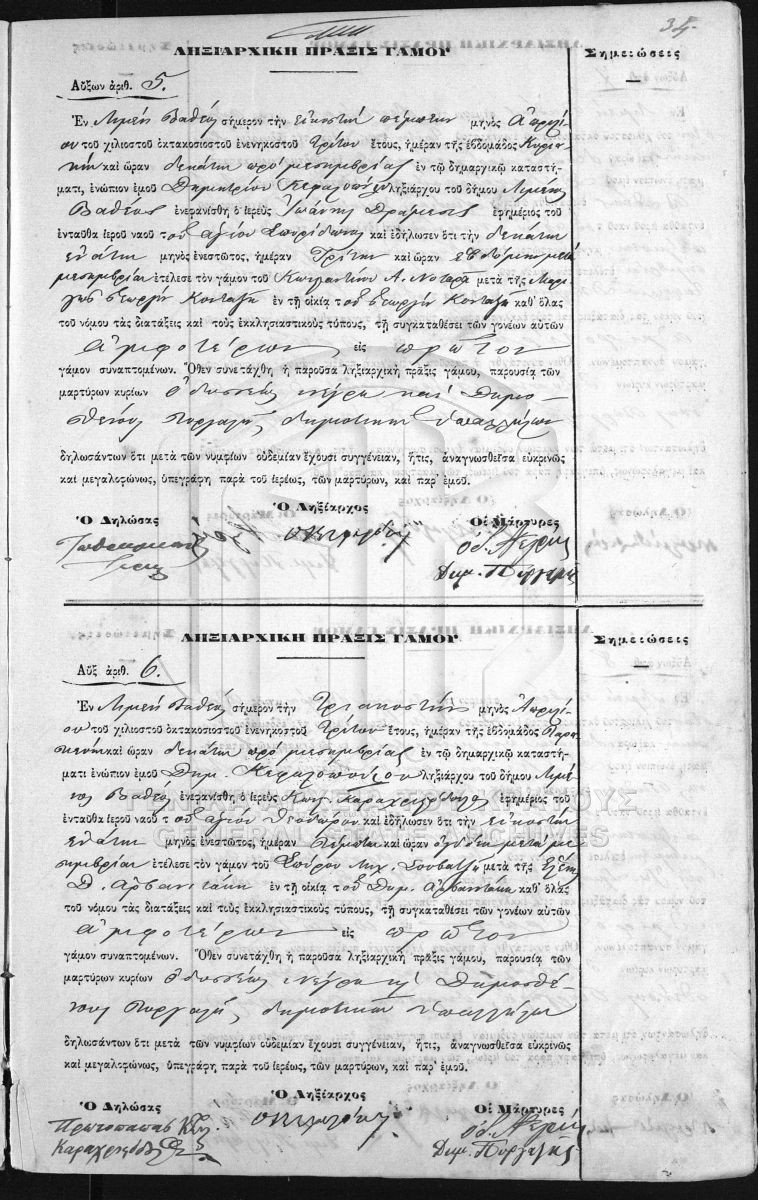 34.
ΛΗΞΙΑΡΧΙΚΗ ΠΡΑΞΙΣ ΓΑΜΟΥ
Σημειώσεις
Αὔξων ἀριθ. 5.
Ἐν Λιμένι Βαθέος σήμερον τὴν εἰκοστὴν πέμπτην μηνὸς Ἀπριλί-
ου τοῦ χιλιοστοῦ ὀκτακοσιοστοῦ ἐνενηκοστοῦ τρίτου ἔτους, ἡμέραν τῆς ἑβδομάδος Κυρια-
κὴν καὶ ὥραν δεκάτην πρὸ μεσημβρίας ἐν τῷ δημαρχικῷ καταστή-
ματι, ἐνώπιον ἐμοῦ Δημητρίου ληξιάρχου τοῦ δήμου Λιμένος
Βαθέος ἐνεφανίσθη ὁ ἱερεὺς Ἰωάννης ἐφημέριος τοῦ
ἐνταῦθα ἱεροῦ ναοῦ τοῦ ἁγίου Σπυρίδωνος καὶ ἐδήλωσεν ὅτι τὴν δεκάτην
ἐνάτην μηνὸς ἐνεστῶτος, ἡμέραν Τρίτην καὶ ὥραν ἑβδόμην μετὰ
μεσημβρίαν ἐτέλεσε τὸν γάμον τοῦ Κωνσταντίνου Α. Νοταρᾶ μετὰ τῆς Μαρι-
γῶς Γεωργίου Κονταξῆ ἐν τῇ οἰκίᾳ τοῦ Γεωργίου Κονταξῆ καθ' ὅλας
τοῦ νόμου τὰς διατάξεις καὶ τοὺς ἐκκλησιαστικοὺς τύπους, τῇ συγκαταθέσει τῶν γονέων αὐτῶν
ἀμφοτέρων εἰς πρῶτον
γάμον συναπτομένων. Ὅθεν συνετάχθη ἡ παροῦσα ληξιαρχικὴ πρᾶξις γάμου, παρουσίᾳ τῶν
μαρτύρων κυρίων Ὀδυσσέως Νέγρη καὶ Δημο-
σθένους δημοτικῶν ὑπαλλήλων
δηλωσάντων ὅτι μετὰ τῶν νυμφίων οὐδεμίαν ἔχουσι συγγένειαν, ἥτις, ἀναγνωσθεῖσα εὐκρινῶς
καὶ μεγαλοφώνως, ὑπεγράφη παρὰ τοῦ ἱερέως, τῶν μαρτύρων, καὶ παρ' ἐμοῦ.
Ὁ Δηλώσας
Ὁ Ληξίαρχος
Οἱ Μάρτυρες
ΛΗΞΙΑΡΧΙΚΗ ΠΡΑΞΙΣ ΓΑΜΟΥ
Σημειώσεις
Αὔξ ἀριθ. 6.
Ἐν Λιμένι Βαθέος σήμερον τὴν Τριακοστὴν μηνὸς Ἀπριλί-
ου τοῦ χιλιοστοῦ ὀκτακοσιοστοῦ ἐνενηκοστοῦ τρίτου ἔτους, ἡμέραν τῆς ἑβδομάδος Παρα-
σκευὴν καὶ ὥραν δεκάτην πρὸ μεσημβρίας ἐν τῷ δημαρχικῷ καταστή-
ματι ἐνώπιον ἐμοῦ Δημ. Κεφαλοπούλου ληξιάρχου τοῦ δήμου Λιμέ-
νος Βαθέος ἐνεφανίσθη ὁ ἱερεὺς Κωνσ. ἐφημέριος τοῦ
ἐνταῦθα ἱεροῦ ναοῦ τοῦ ἁγίου Θεοδώρου καὶ ἐδήλωσεν ὅτι τὴν εἰκοστὴν
ἐνάτην μηνὸς ἐνεστῶτος, ἡμέραν Πέμπτην καὶ ὥραν ὀγδόην μετὰ με-
σημβρίαν ἐτέλεσε τὸν γάμον τοῦ Σπύρου Μιχ. μετὰ τῆς Ἑλένης
Δ. Ἀρβανιτάκη ἐν τῇ οἰκίᾳ τοῦ Δημ. Ἀρβανιτάκη καθ' ὅλας
τοῦ νόμου τὰς διατάξεις καὶ τοὺς ἐκκλησιαστικοὺς τύπους, τῇ συγκαταθέσει τῶν γονέων αὐτῶν
ἀμφοτέρων εἰς πρῶτον
γάμον συναπτομένων. Ὅθεν συνετάχθη ἡ παροῦσα ληξιαρχικὴ πρᾶξις γάμου, παρουσίᾳ τῶν
μαρτύρων κυρίων Ὀδυσσέως Νέγρη κ Δημοσθέ-
νους δημοτικῶν ὑπαλλήλων
δηλωσάντων ὅτι μετὰ τῶν νυμφίων οὐδεμίαν ἔχουσι συγγένειαν, ἥτις, ἀναγνωσθεῖσα εὐκρινῶς
καὶ μεγαλοφώνως, ὑπεγράφη παρὰ τοῦ ἱερέως, τῶν μαρτύρων, καὶ παρ' ἐμοῦ.
Ὁ Δηλώσας
Ὁ Ληξίαρχος
Οἱ Μάρτυρες
Πρωτοπαπᾶς
GENERAL STATE ARCHIVES